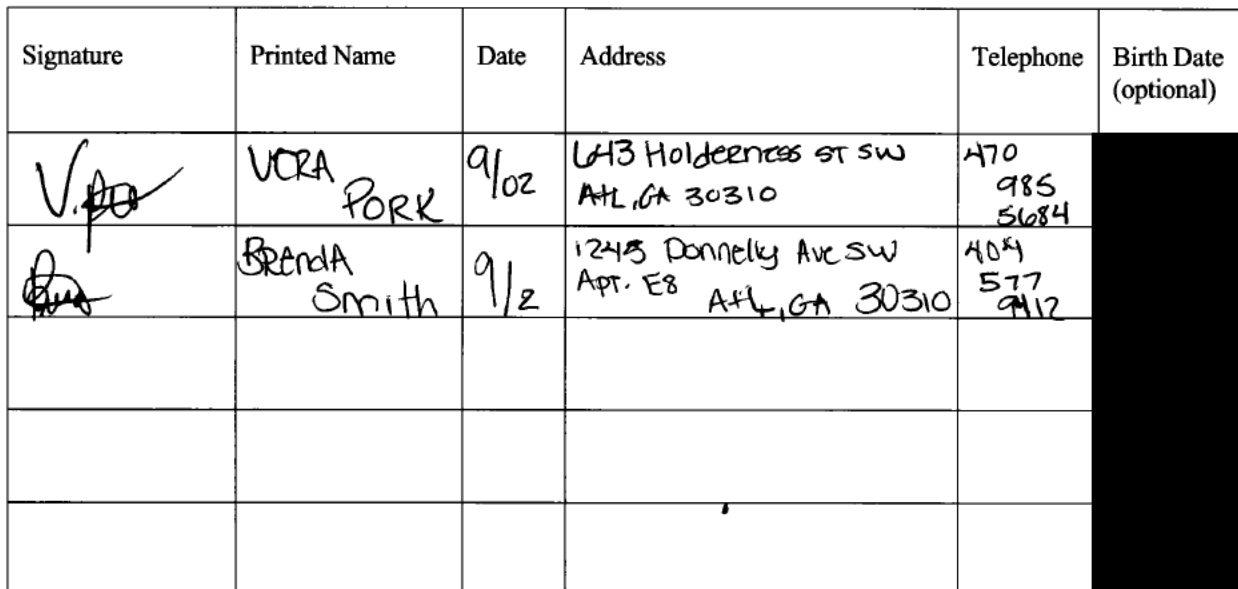 Signature
Printed Name
Date
Address
Telephone
Birth Date
(optional)
VERA
PORK
9/02
643 Holderness ST SW
Atl, GA 30310
470
985
5684
BRendA
Smith
9/2
Donnelly Ave SW
Apt. E8
Atl, GA 30310
404
577
9412